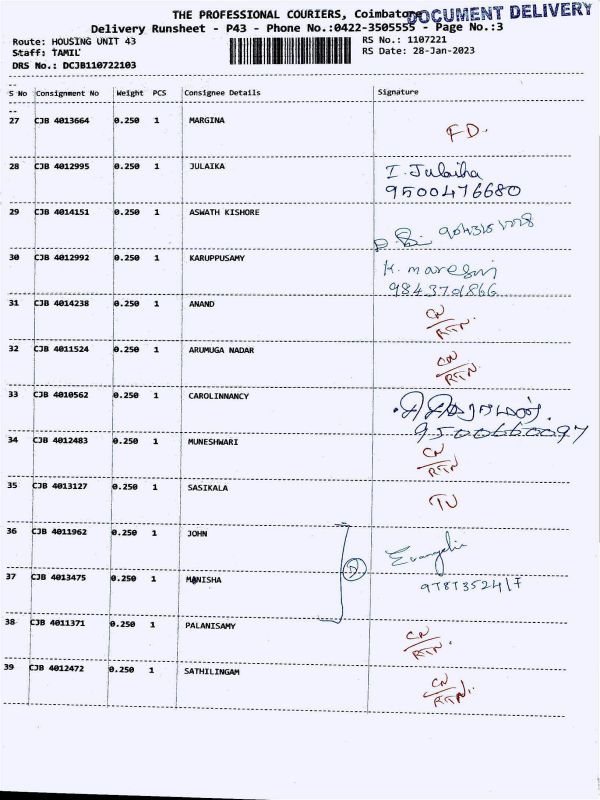 THE PROFESSIONAL COURIERS, Coimbatore
DOCUMENT DELIVERY
Delivery Runsheet - P43 - Phone No.:0422-3505555 - Page No.:3
Route: HOUSING UNIT 43
RS No.: 1107221
Staff: TAMIL
RS Date: 28-Jan-2023
DRS No.: DCJB110722103
S No Consignment No Weight PCS Consignee Details Signature
27 CJB 4013664 0.250 1 MARGINA FD.
28 CJB 4012995 0.250 1 JULAIKA I. Julaiha
9500476680
29 CJB 4014151 0.250 1 ASWATH KISHORE
30 CJB 4012992 0.250 1 KARUPPUSAMY K. mareswi
9843701866
31 CJB 4014238 0.250 1 ANAND CN
RTN.
32 CJB 4011524 0.250 1 ARUMUGA NADAR CN
RTN.
33 CJB 4010562 0.250 1 CAROLINNANCY
9500660097
34 CJB 4012483 0.250 1 MUNESHWARI CN
RTN
35 CJB 4013127 0.250 1 SASIKALA
36 CJB 4011962 0.250 1 JOHN
37 CJB 4013475 0.250 1 MANISHA
38 CJB 4011371 0.250 1 PALANISAMY CN
RTN.
39 CJB 4012472 0.250 1 SATHILINGAM CN
RTN.